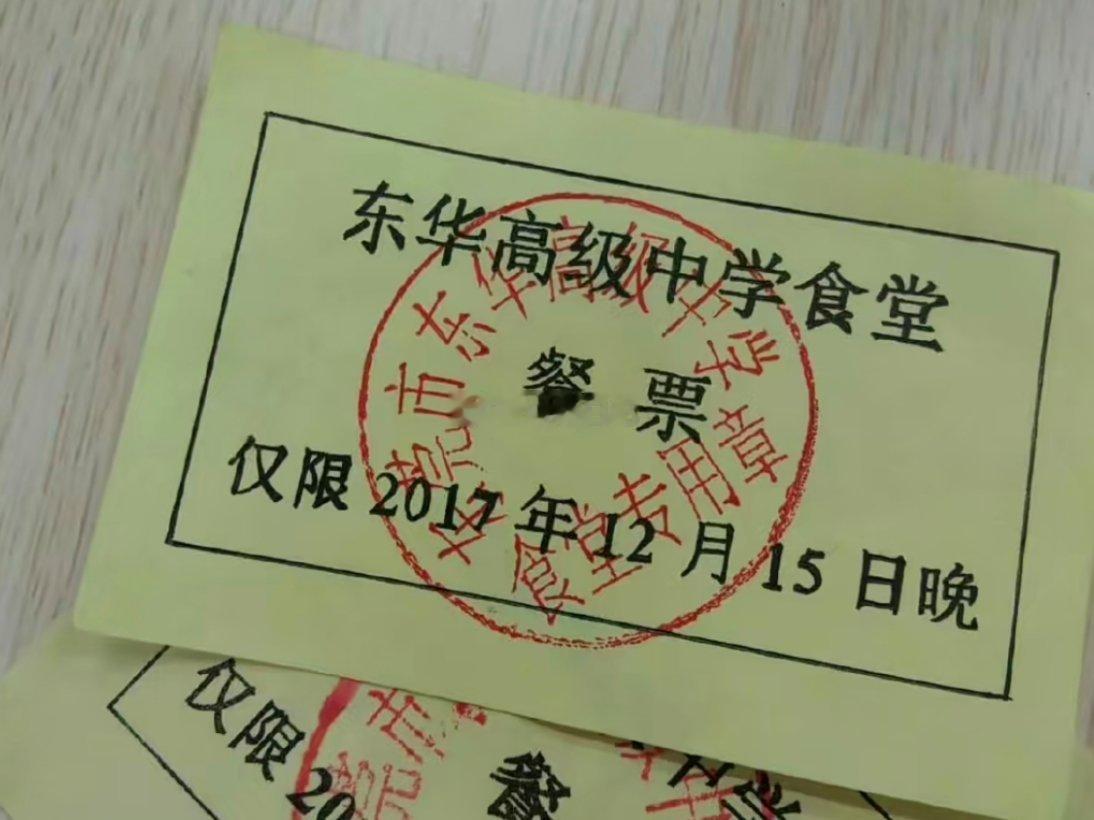 东华高级中学食堂
餐 票
仅限 2017 年 12 月 15 日晚
东莞市东华高级中学
食堂专用章
仅限 20
餐